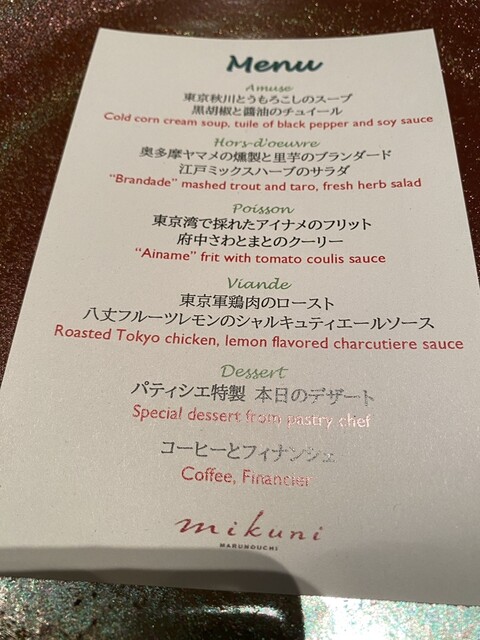 Menu
Amuse
東京秋川とうもろこしのスープ
黒胡椒と醤油のチュイール
Cold corn cream soup, tuile of black pepper and soy sauce
Hors-d'oeuvre
奥多摩ヤマメの燻製と里芋のブランダード
江戸ミックスハーブのサラダ
"Brandade" mashed trout and taro, fresh herb salad
Poisson
東京湾で採れたアイナメのフリット
府中さわとまとのクーリー
"Ainame" frit with tomato coulis sauce
Viande
東京軍鶏肉のロースト
八丈フルーツレモンのシャルキュティエールソース
Roasted Tokyo chicken, lemon flavored charcutiere sauce
Dessert
パティシエ特製 本日のデザート
Special dessert from pastry chef
コーヒーとフィナンシェ
Coffee, Financier
mikuni
MARUNOUCHI